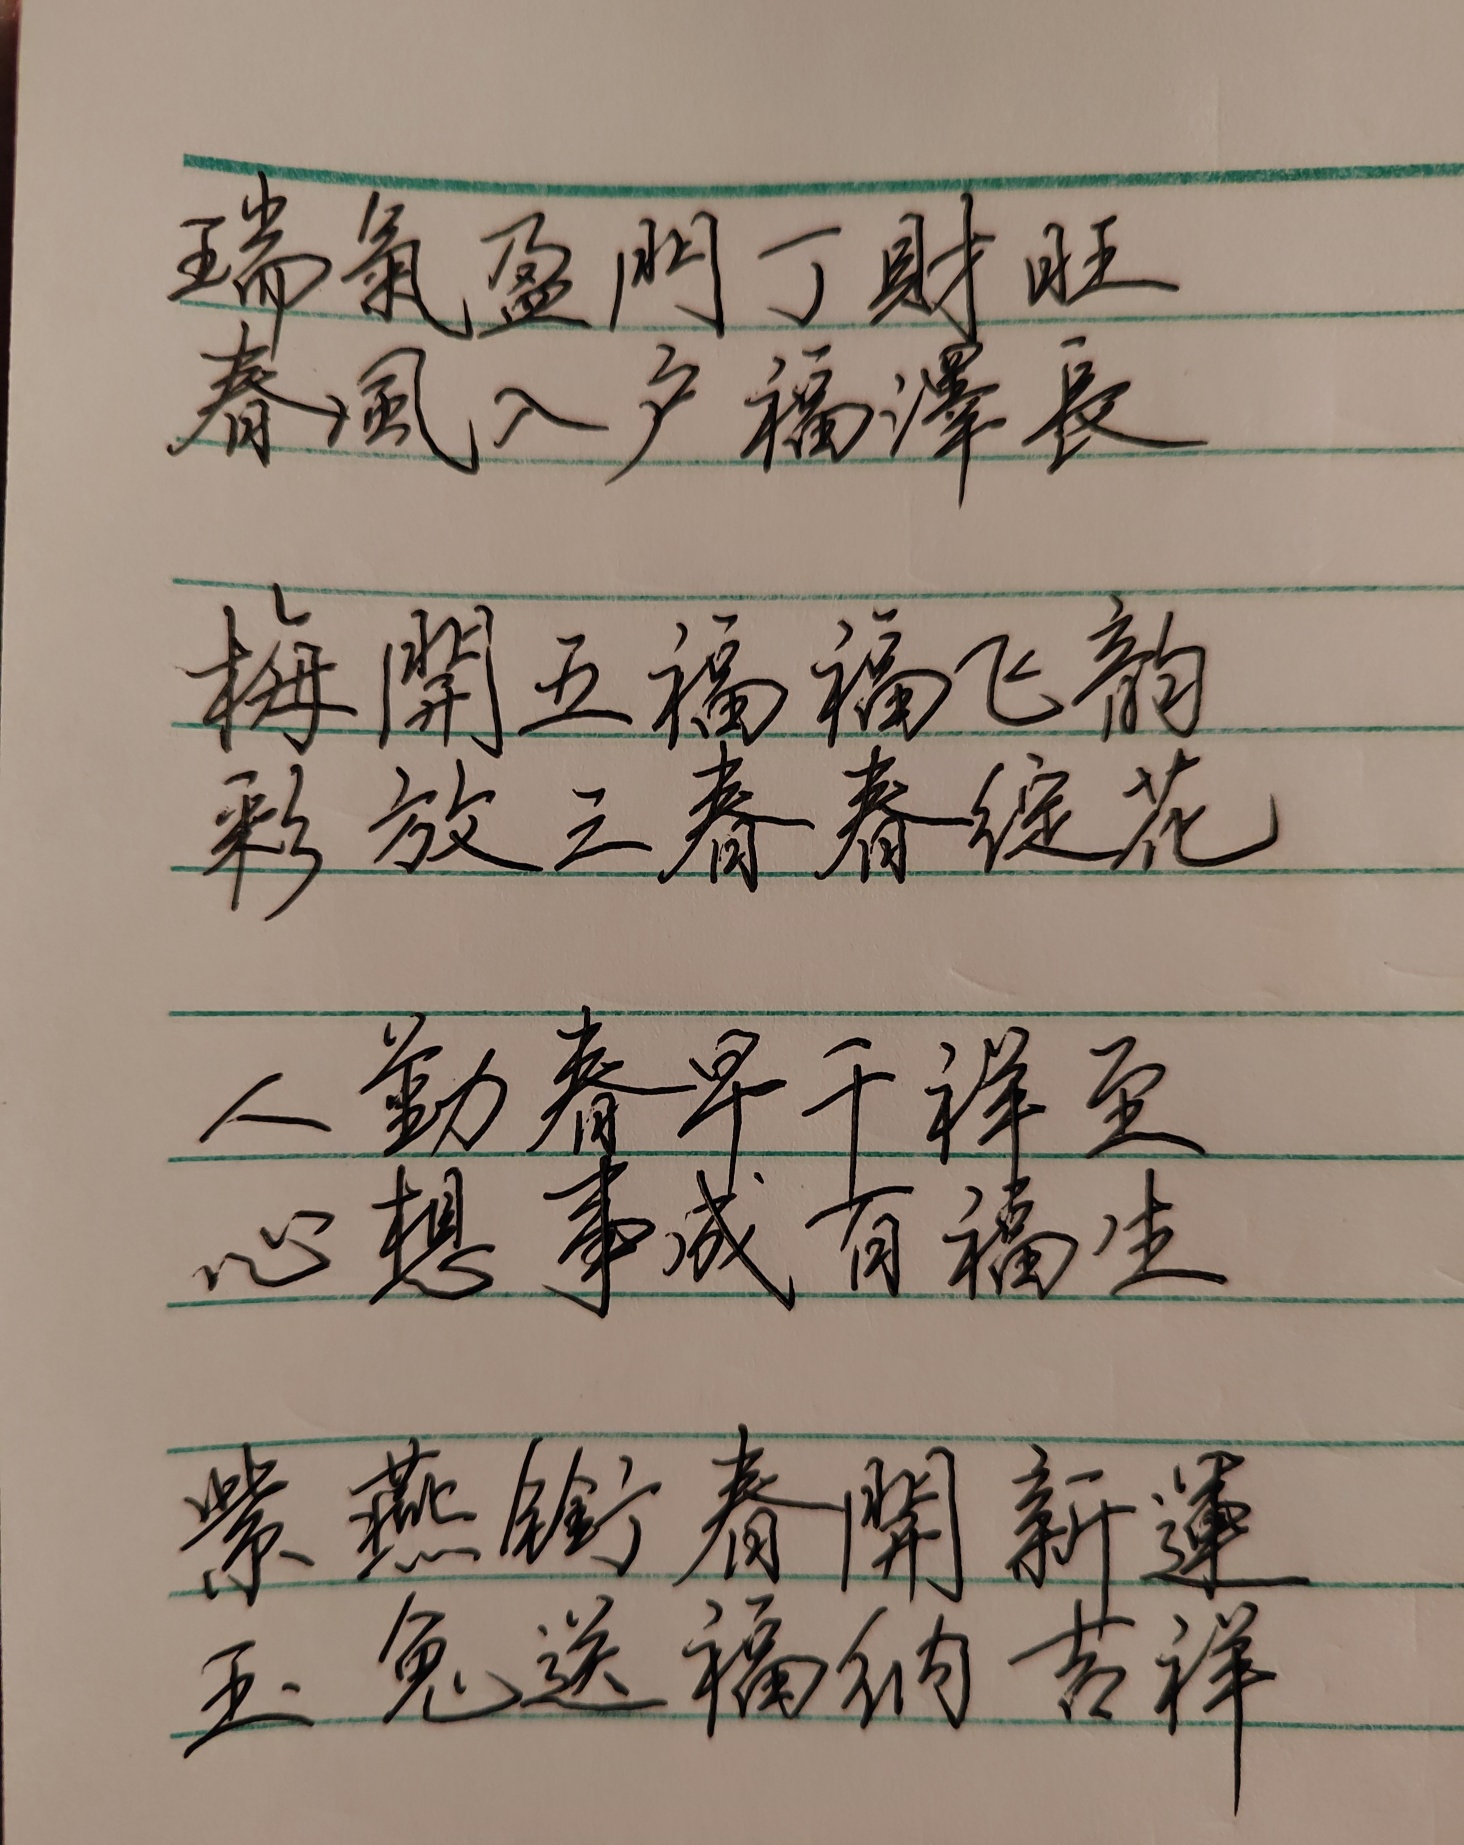 瑞氣盈門丁財旺
春風入户福澤長
梅開五福福飞韵
彩放三春春綻花
人勤春早千祥至
心想事成百福生
紫燕銜春開新運
玉兔送福納吉祥